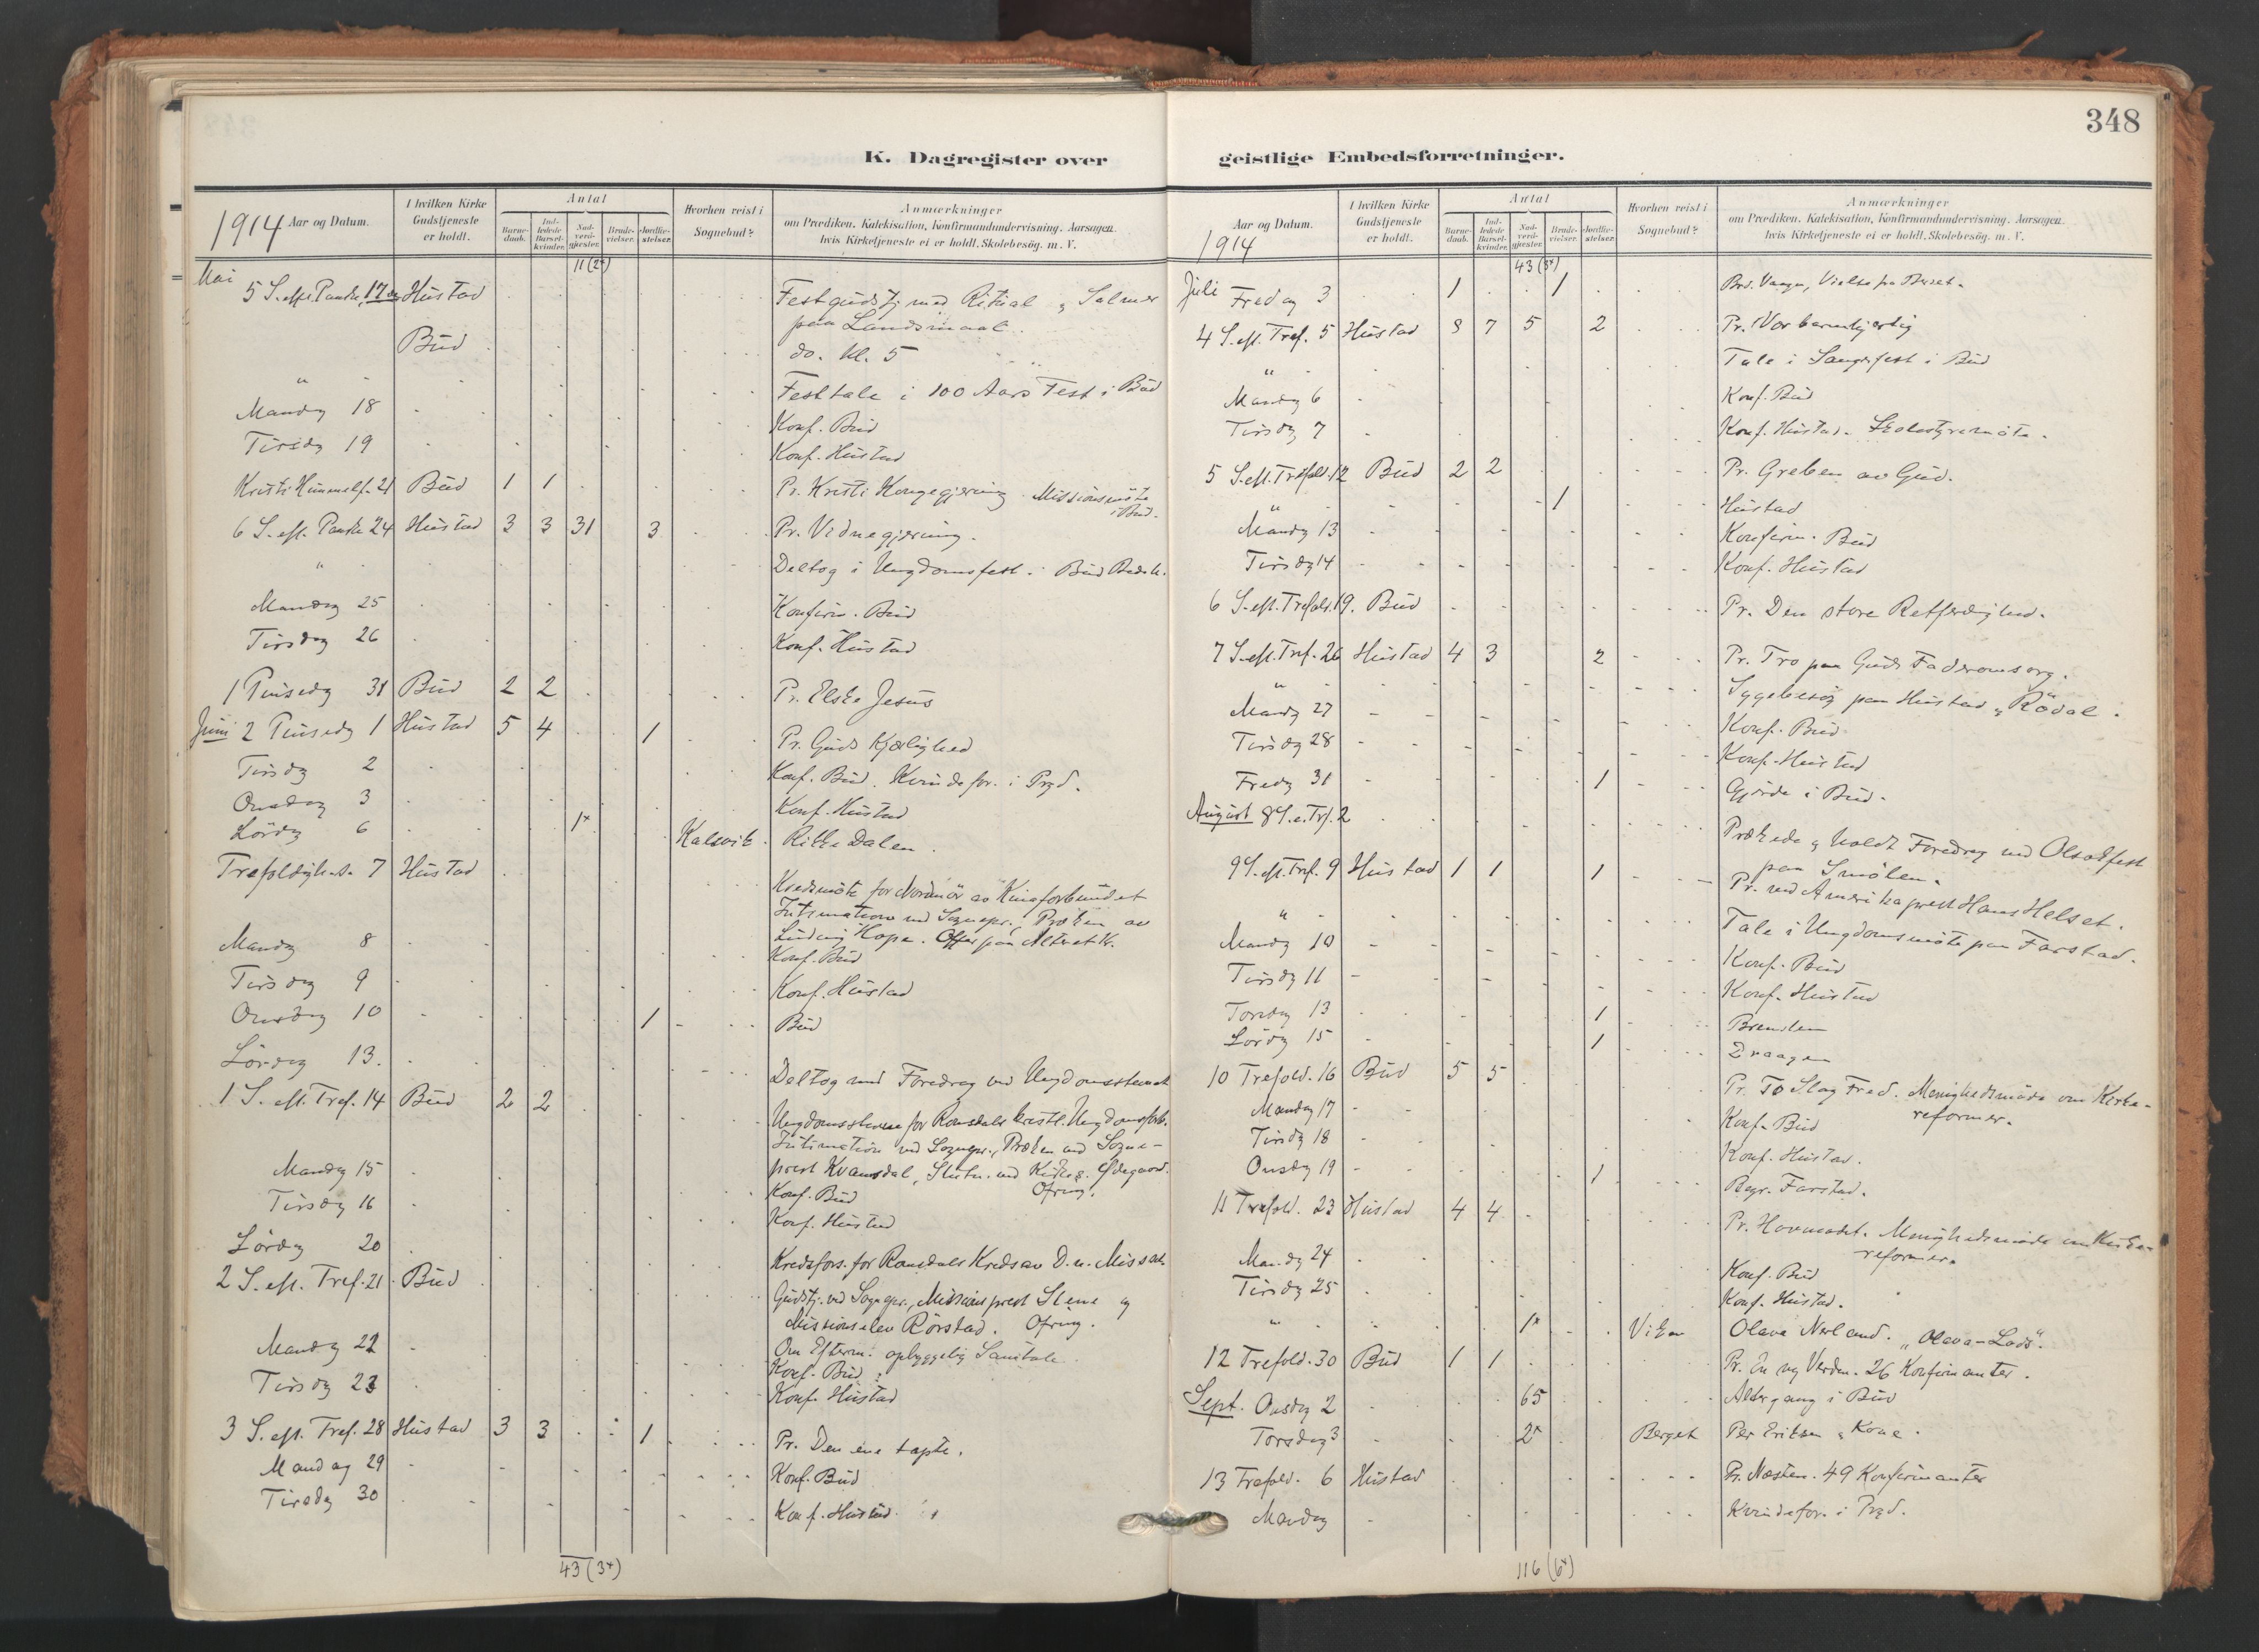 348
K. Dagregister over
geistlige Embedsforretninger.
1914 Aar og Datum.
I hvilken Kirke Gudstjeneste er holdt.
Antal
Barnedaab.
Indledede Barselkvinder.
Nadverdgjester.
Brudevielser.
Jordfæstelser.
Hvorhen reist i Sognebud?
Anmærkninger
om Prædiken, Katekisation, Konfirmandundervisning. Aarsagen
hvis Kirketjeneste ei er holdt. Skolebesög. m. V.
11 (2x)
Mai
5 S. eft. Paaske 17de Hustad Festgudstj. med Ritual og Salmer
paa Landsmaal.
Bud do. kl. 5
" Festtale i 100 Aars Fest i Bud
Mandg 18 Konf. Bud
Tirsdg 19 Konf. Hustad
Kristi Himmelf. 21 Bud 1 1 Pr. Kristi Kongegjerning. Missionsmöte
i Bud.
6 S. eft. Paaske 24 Hustad 3 3 31 3 Pr. Vidnegjerning.
" Deltog i Ungdomsfest i Bud Bedeh.
Mandag 25 Konfirm. Bud
Tirsdag 26 Konf. Hustad
1 Pinsedg 31 Bud 2 2 Pr. Elske Jesus
Juni 2 Pinsedg 1 Hustad 5 4 1 Pr. Guds Kjærlighed
Tirsdg 2 Konf. Bud. Kvindefor. i Prgd.
Onsdag 3 Konf. Hustad
Lördg 6 1x Kalsvik Rikke Dalen.
Trefoldighets. 7 Hustad Kredsmöte for Nordmör av Kinaforbundet
Intimation ved Sognepr., Præken av
Ludvig Hope. Offer paa Alteret Kr.
Mandg 8 Konf. Bud
Tirsdag 9 Konf. Hustad
Onsdag 10 1 Bud
Lördag 13. Deltog med Foredrag ved Ungdomsstevnet
1 S. eft. Tref. 14 Bud 2 2 Ungdomsstevne for Romsdals kristl. Ungdomsforb.
Intimation ved Sognepr., Præken ved Sogne-
prest Kvamsdal, Slutn. ved Kirkes. Ödegaard.
Ofring.
Mandag 15 Konf. Bud
Tirsdg 16 Konf. Hustad
Lördg 20 Kredsfors. for Romsdals Kreds av D. n. Missels.
2 S. eft. Tref. 21 Bud Gudstj. ved Sognepr., Missionsprest Slene og
Missionselev Rörstad. Ofring.
Om Efterm. opbyggelig Samtale.
Mandg 22 Konf. Bud
Tirsdg 23 Konf. Hustad
3 S. eft. Tref. 28 Hustad 3 3 1 Pr. Den ene tapte.
Mandag 29 Konf. Bud
Tirsdg 30 Konf. Hustad
43 (3x)
Aar og Datum.
1914
I hvilken Kirke Gudstjeneste er holdt.
Antal
Barnedaab.
Indledede Barselkvinder.
Nadverdgjester.
Brudevielser.
Jordfæstelser.
Hvorhen reist i Sognebud?
Anmærkninger
om Prædiken, Katekisation, Konfirmandundervisning. Aarsagen
hvis Kirketjeneste ei er holdt. Skolebesög. m. V.
43 (3x)
Juli Fredag 3 1 1 Vielse
4 S. eft. Tref. 5 Hustad 8 7 5 2 Pr. Vær barmhjertig
" Tale i Sangerfest i Bud
Mandg 6 Konf. Bud
Tirsdg 7 Konf. Hustad. Skolestyremöte.
5 S. eft. Trefold. 12 Bud 2 2 Pr. Greben av Gud.
" 1 Hustad
Mandg 13 Konfirm. Bud
Tirsdg 14 Konf. Hustad
6 S. eft. Trefold. 19. Bud Pr. Den store Retfærdighed.
7 S. eft. Tref. 26 Hustad 4 3 2 Pr. Tro paa Guds Faderomsorg.
" Sygebesög paa Hustad og Rödal.
Mandg 27 Konf. Bud
Tirsdg 28 Konf. Hustad
Fredg 31 1 Gjörde i Bud.
August 8 S. e. Trf. 2 Prækede og holdt Foredrag ved Olsokfest
paa Smölen.
9 S. eft. Tref. 9 Hustad 1 1 1 Pr. ved Amerikaprest Hans Helset.
" Tale i Ungdomsmöte paa Farstad.
Mandg 10 Konf. Bud
Tirsdg 11 Konf. Hustad
Torsdg 13 1 Bremslen
Lördg 15 1 Draagen
10 Trefold. 16 Bud 5 5 Pr. To Slag Fred. Menighedsmöde om Kirke-
reformer.
Mandag 17 Konf. Bud
Tirsdg 18 Konf. Hustad.
Onsdg 19 1 Begr. Farstad.
11 Trefold. 23 Hustad 4 4 Pr. Hovmodet. Menighedsmöde om Kirke-
reformer.
Mandg 24 Konf. Bud
Tirsdg 25 Konf. Hustad.
" 1x Viken Olava Nerland. "Olava-Lods".
12 Trefold. 30 Bud 1 1 Pr. En ny Verden. 26 Konfirmanter.
Sept. Onsdag 2 65 Altergang i Bud
Torsdag 3 2x Berget Per Eriksen og Kone.
13 Trefold. 6 Hustad Pr. Næsten. 49 Konfirmanter
Mandag Kvindefor. i Prgd.
116 (6x)